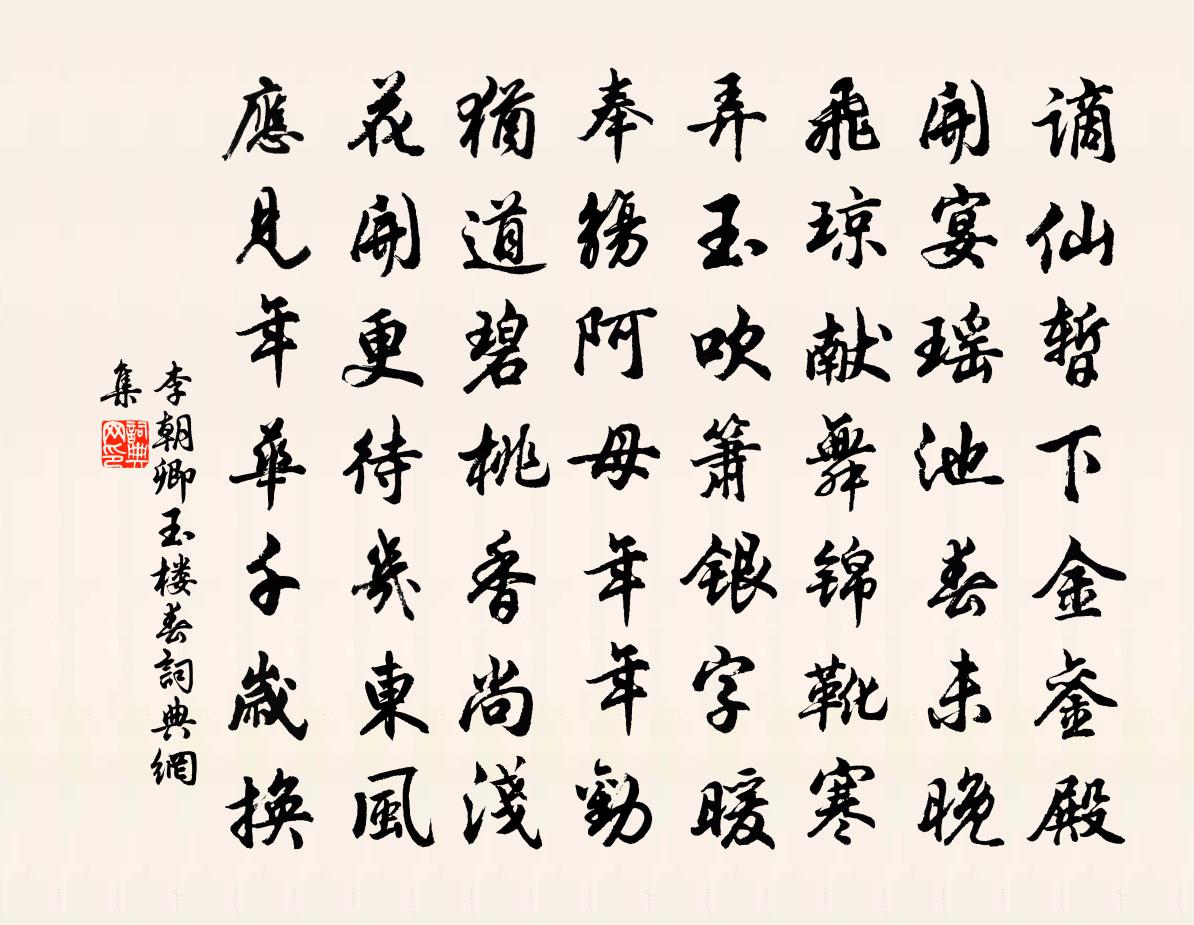 谪仙暂下金銮殿
開宴瑶池春未晚
飛琼献舞锦靴寒
弄玉吹箫银字暖
奉觴阿母年年勸
猶道碧桃香尚淺
花開更待幾東風
應見年華千歲換
李朝卿玉楼春詞典網
集
詞典
网印